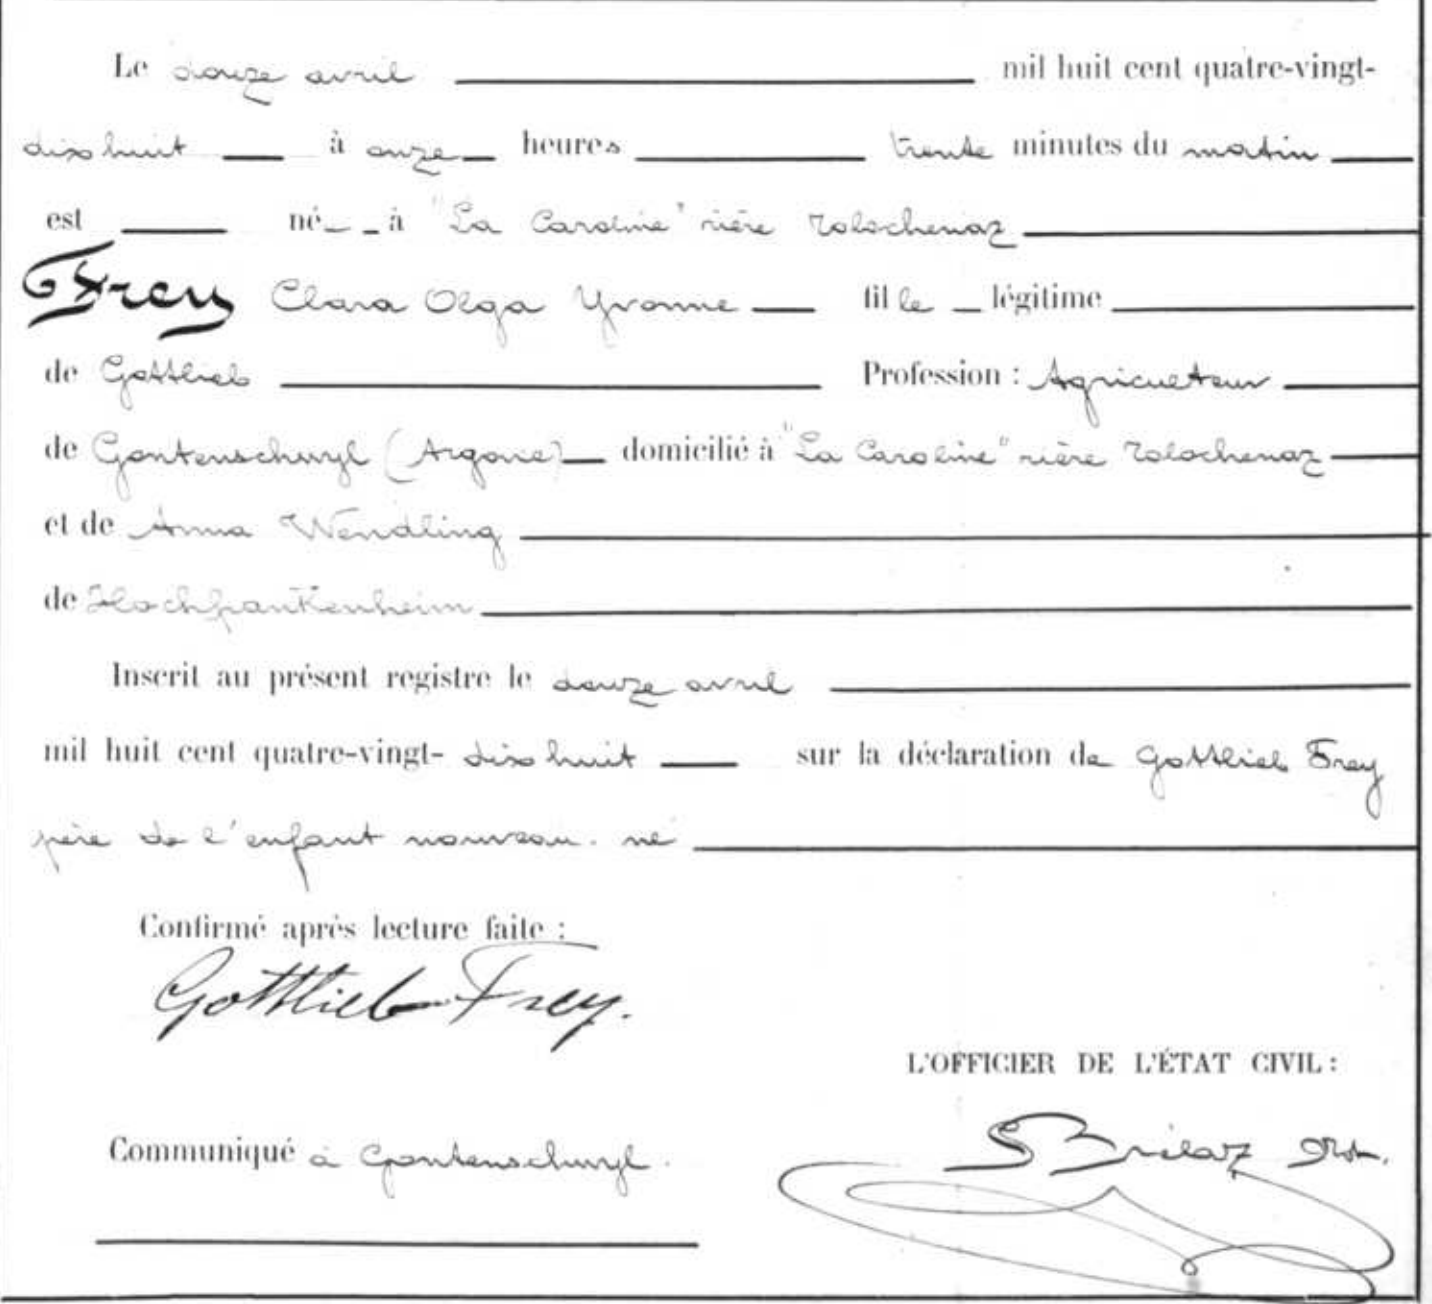 Le douze avril mil huit cent quatre-vingt-
dix huit à onze heures trente minutes du matin
est né à "La Caroline" rière Tolochenaz
Frey Clara Olga Yvonne fille légitime
de Gottlieb Profession : Agriculteur
de Gontenschwyl (Argovie) domicilié à "La Caroline" rière Tolochenaz
et de Anna Wendling
de Hochfrankenheim
Inscrit au présent registre le douze avril
mil huit cent quatre-vingt- dix huit sur la déclaration de Gottlieb Frey
père de l'enfant nouveau-né
Confirmé après lecture faite :
Gottlieb Frey.
L'OFFICIER DE L'ÉTAT CIVIL :
Communiqué à Gontenschwyl.
S Brélaz